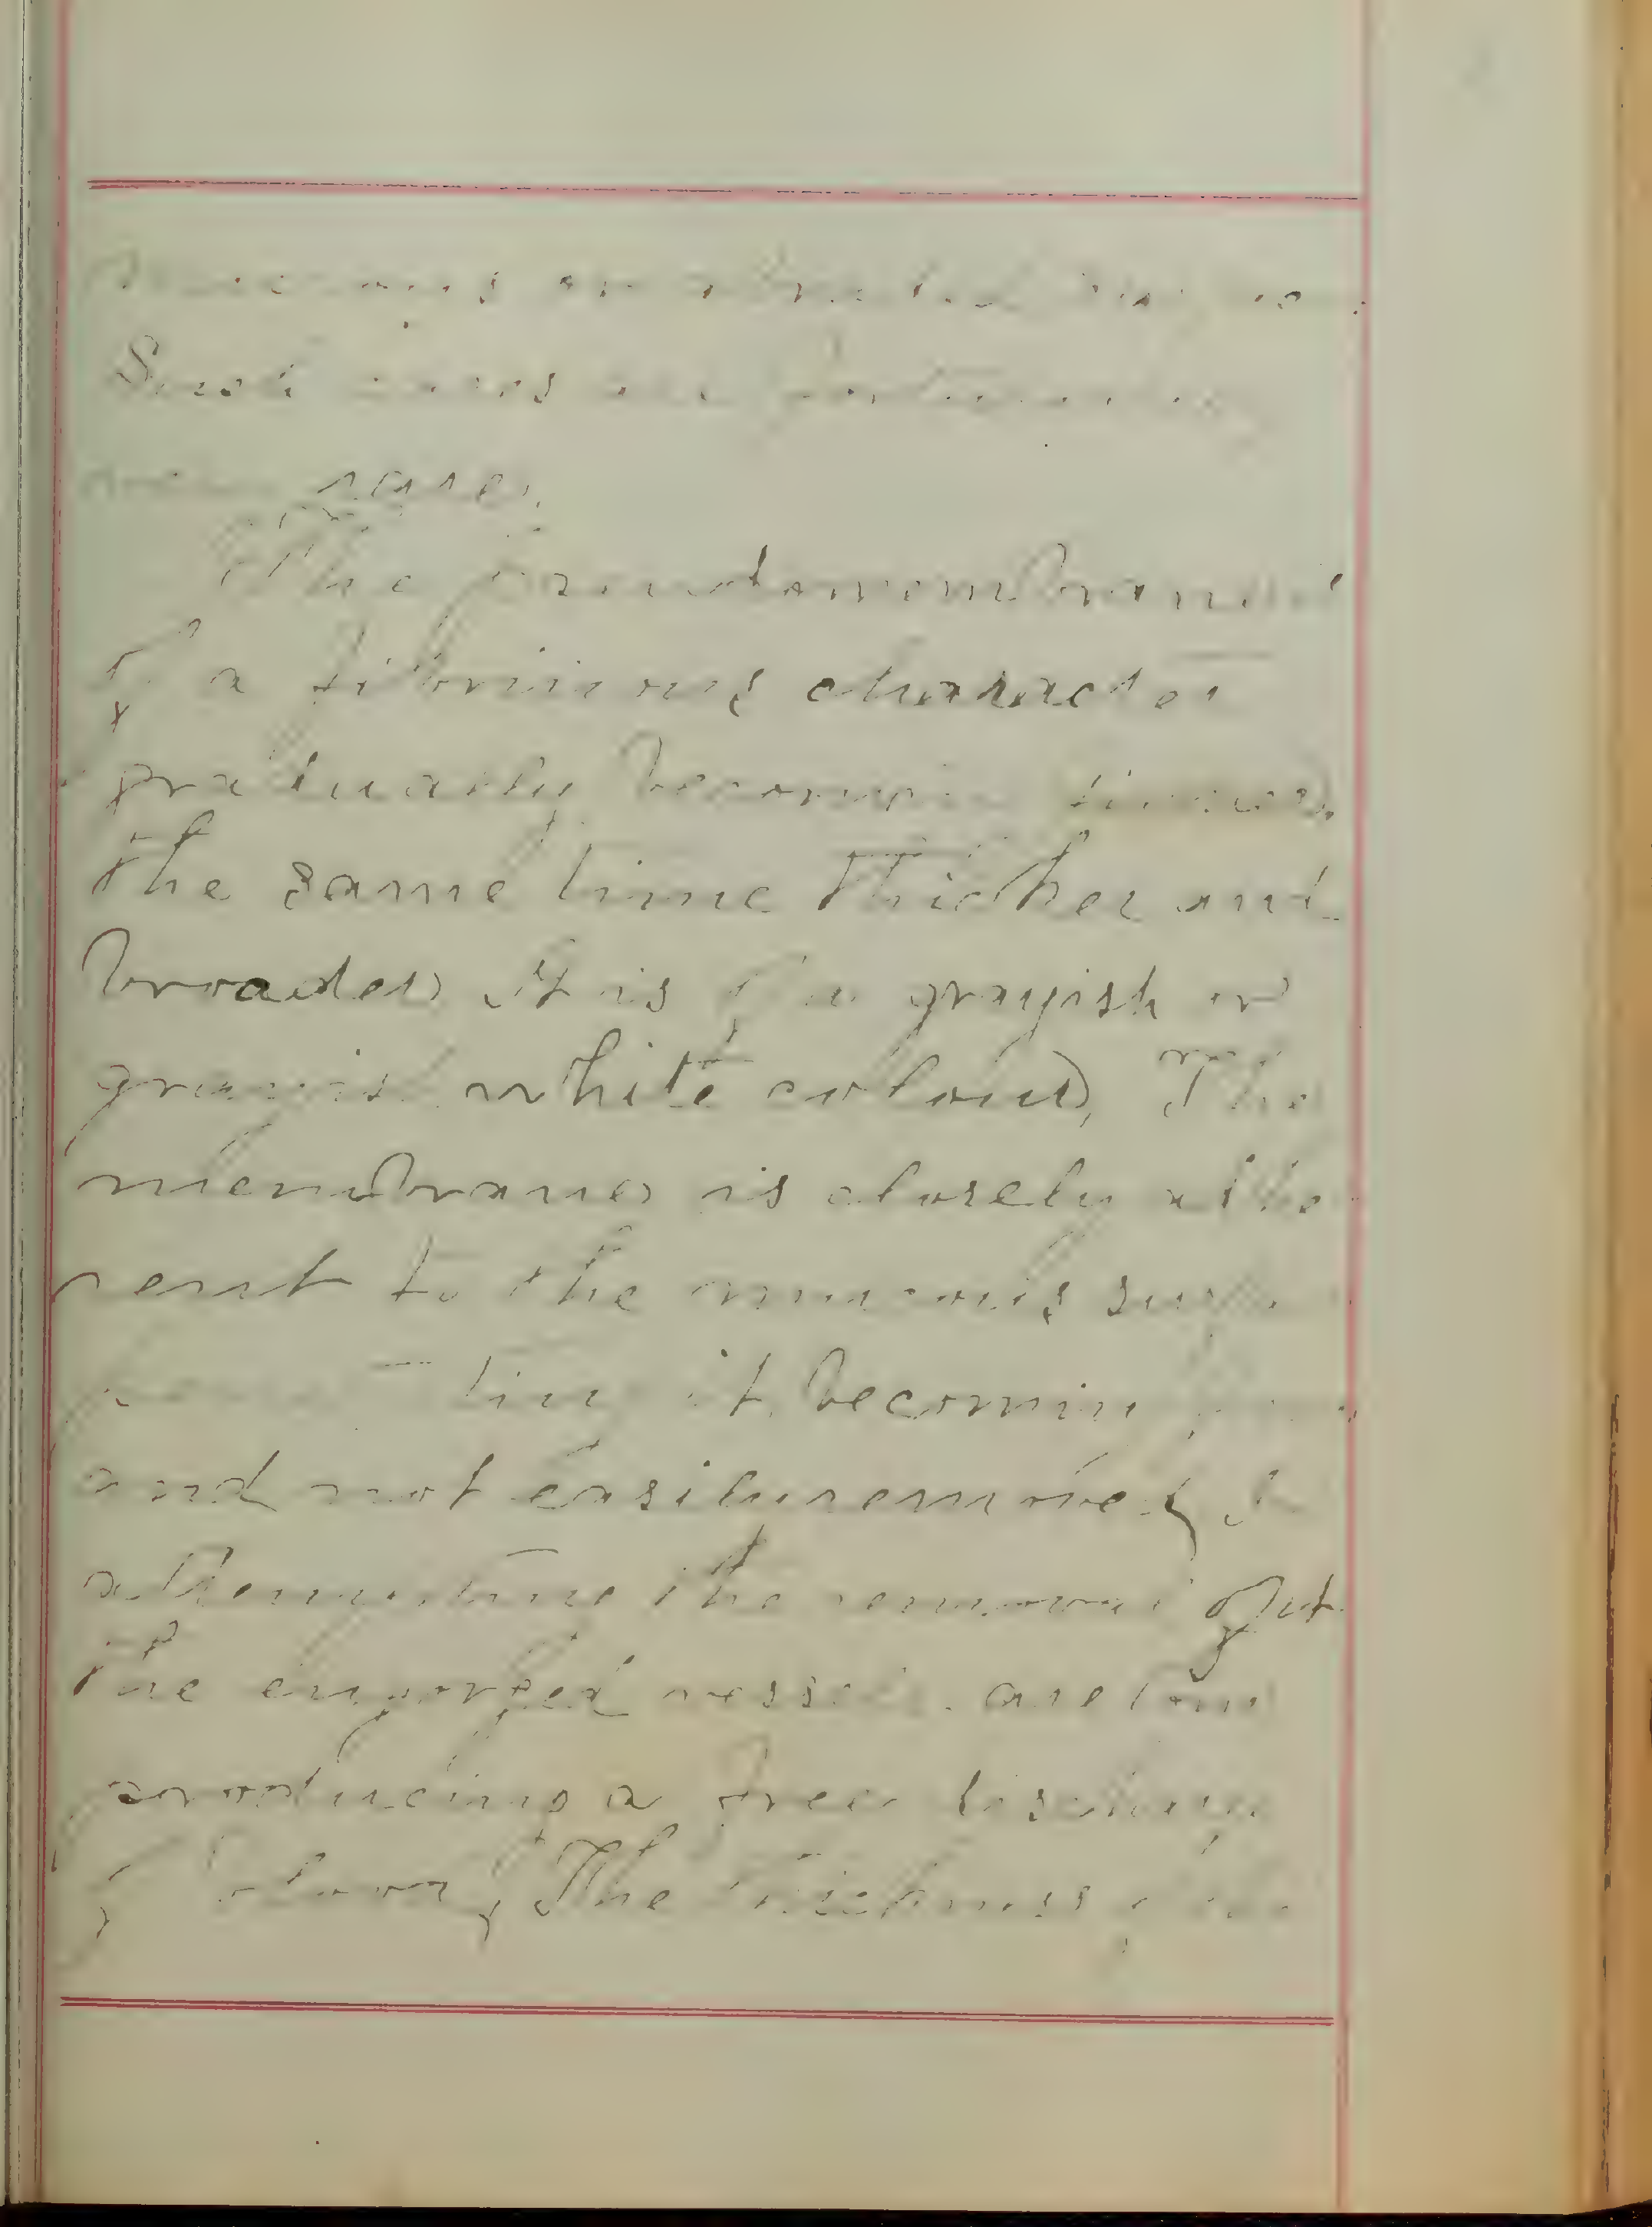 Such cases are fortunately
rare.
The pseudomembrane is
of a fibrinous character
gradually becoming firmer,
the same time thicker and
broader. It is of a grayish or
grayish white colour, The
membrane is closely adhe
rent to the mucous sur
lining it becoming
and not easily removed, In
attempting the removal of it
the engorged vessels are torn
producing a free discharge
of blood, The thickness of the